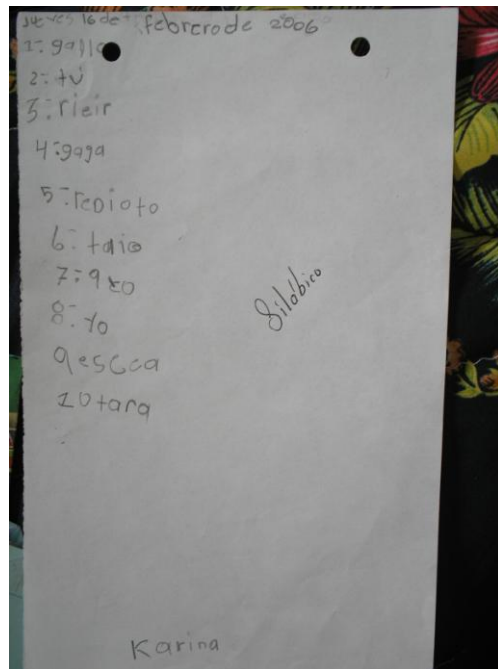 jueves 16 de febrero de 2006
1-
2- tú
3- rieir
4- gaga
5- repioto
6- taio
7-
8- yo
9 escca
10 tara
Silábico
Karina